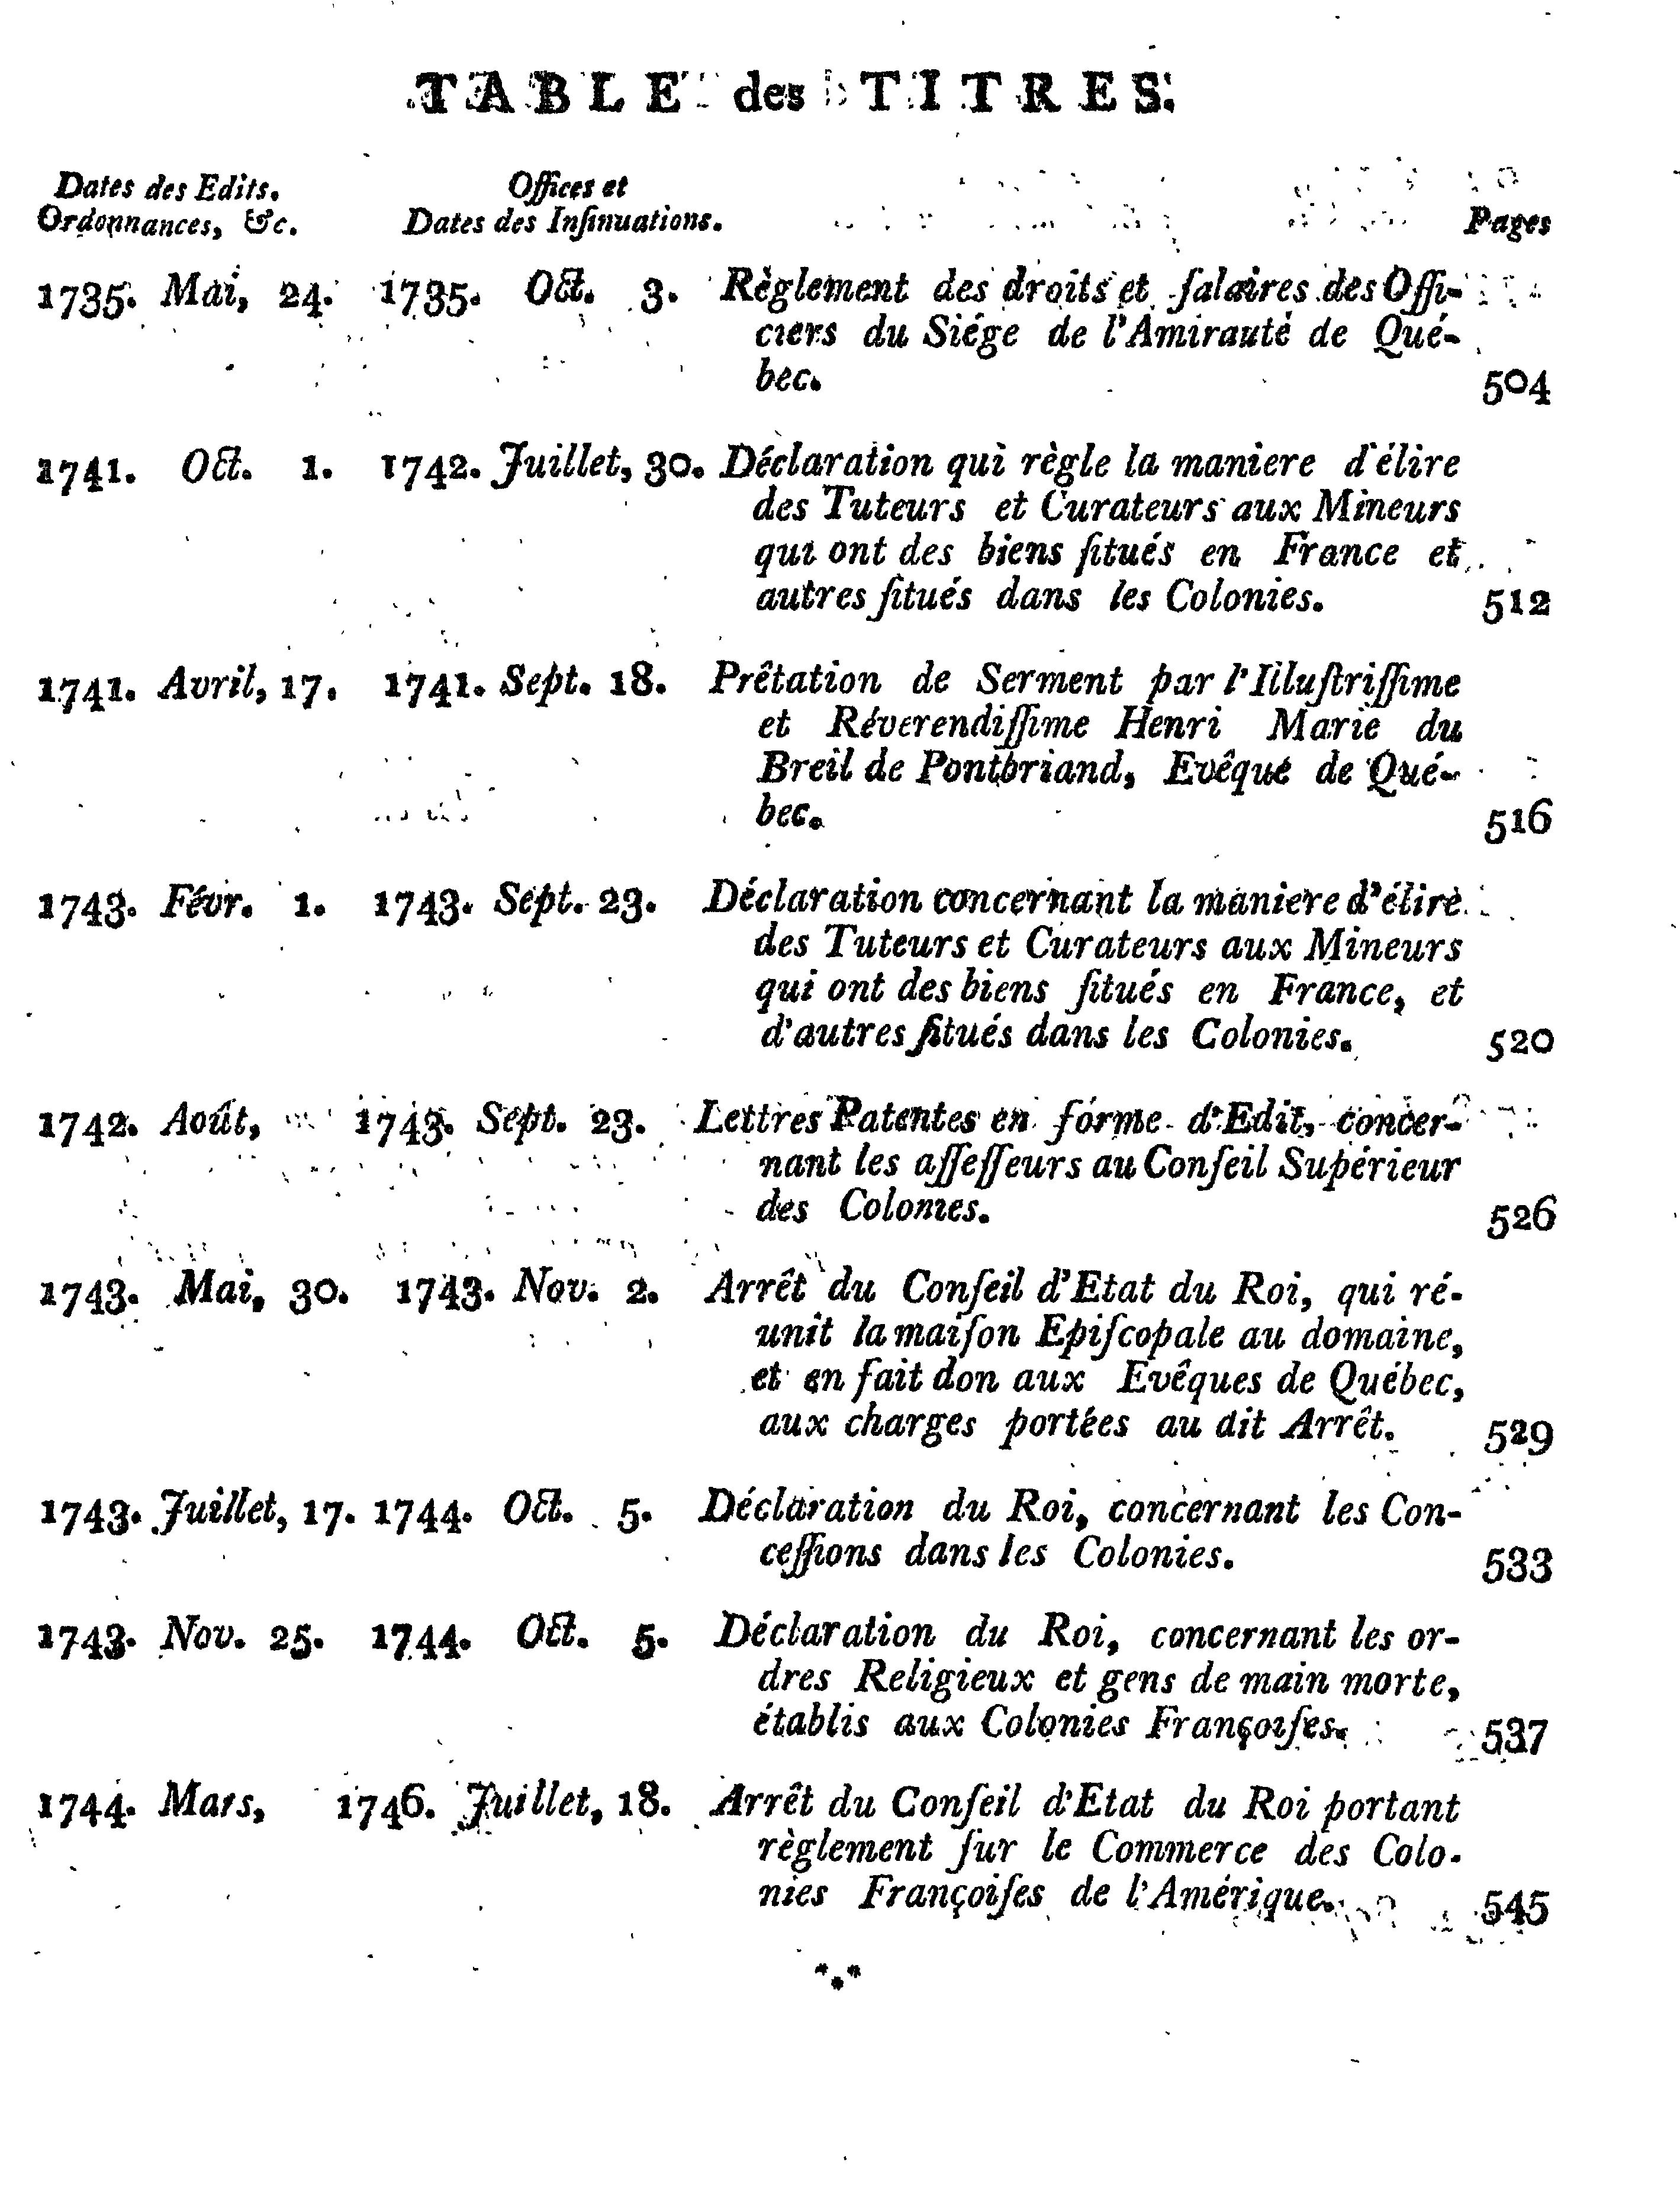 TABLE des TITRES.
Dates des Edits. Offices et
Ordonnances, &c. Dates des Inſinuations. Pages
1735. Mai, 24. 1735. Oct. 3. Règlement des droits et ſalaires des Offi-
ciers du Siége de l'Amirauté de Qué-
bec. 504
1741. Oct. 1. 1742. Juillet, 30. Déclaration qui règle la maniere d'élire
des Tuteurs et Curateurs aux Mineurs
qui ont des biens ſitués en France et
autres ſitués dans les Colonies. 512
1741. Avril, 17. 1741. Sept. 18. Prêtation de Serment par l'Illuſtriſſime
et Réverendiſſime Henri Marie du
Breil de Pontbriand, Evêque de Qué-
bec. 516
1743. Févr. 1. 1743. Sept. 23. Déclaration concernant la maniere d'élire
des Tuteurs et Curateurs aux Mineurs
qui ont des biens ſitués en France, et
d'autres ſitués dans les Colonies. 520
1742. Août, 1743. Sept. 23. Lettres Patentes en forme d'Edit, concer-
nant les aſſeſſeurs au Conſeil Supérieur
des Colonies. 526
1743. Mai, 30. 1743. Nov. 2. Arrêt du Conſeil d'Etat du Roi, qui ré-
unit la maiſon Epiſcopale au domaine,
et en fait don aux Evêques de Québec,
aux charges portées au dit Arrêt. 529
1743. Juillet, 17. 1744. Oct. 5. Déclaration du Roi, concernant les Con-
ceſſions dans les Colonies. 533
1743. Nov. 25. 1744. Oct. 5. Déclaration du Roi, concernant les or-
dres Religieux et gens de main morte,
établis aux Colonies Françoiſes. 537
1744. Mars, 1746. Juillet, 18. Arrêt du Conſeil d'Etat du Roi portant
règlement ſur le Commerce des Colo-
nies Françoiſes de l'Amérique. 545
***